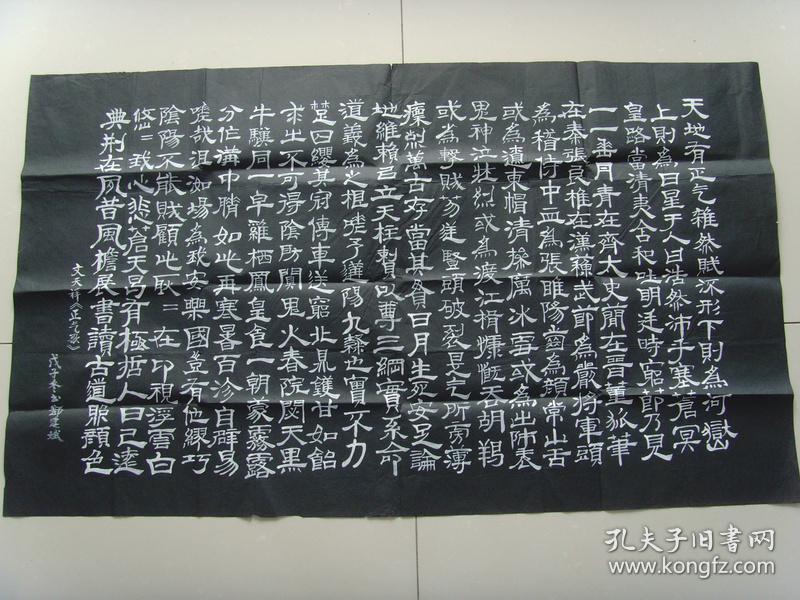 天地有正气雜然賦流形下則為河嶽
上則為日星于人曰浩然沛乎塞蒼冥
皇路當清夷含和吐明廷時窮節乃見
一一垂丹青在齊太史簡在晋董狐筆
在秦張良椎在漢蘇武節為嚴將軍頭
為嵇侍中血為張睢陽齒為顔常山舌
或為遼東帽清操厲冰雪或為出師表
鬼神泣壯烈或為渡江楫慷慨吞胡羯
或為擊賊笏逆豎頭破裂是气所磅薄
凜烈萬古存當其貫日月生死安足論
地維賴㠯立天柱賴㠯尊三綱實系命
道義為之根嗟予遘陽九隸也實不力
楚囚纓其冠傳車送窮北鼎鑊甘如飴
求之不可得陰房闃鬼火春院閟天黑
牛驥同一皁雞栖鳳皇食一朝蒙霧露
分作溝中瘠如此再寒暑百沴自辟易
嗟哉沮洳場為我安樂國豈有他繆巧
陰陽不能賊顧此耿=在卬視浮雲白
悠=我心悲蒼天曷有極哲人日已遠
典刑在夙昔風檐展書讀古道照顔色
文天祥《正气歌》
戊子冬書鄒建斌
孔夫子旧書网
www.kongfz.com